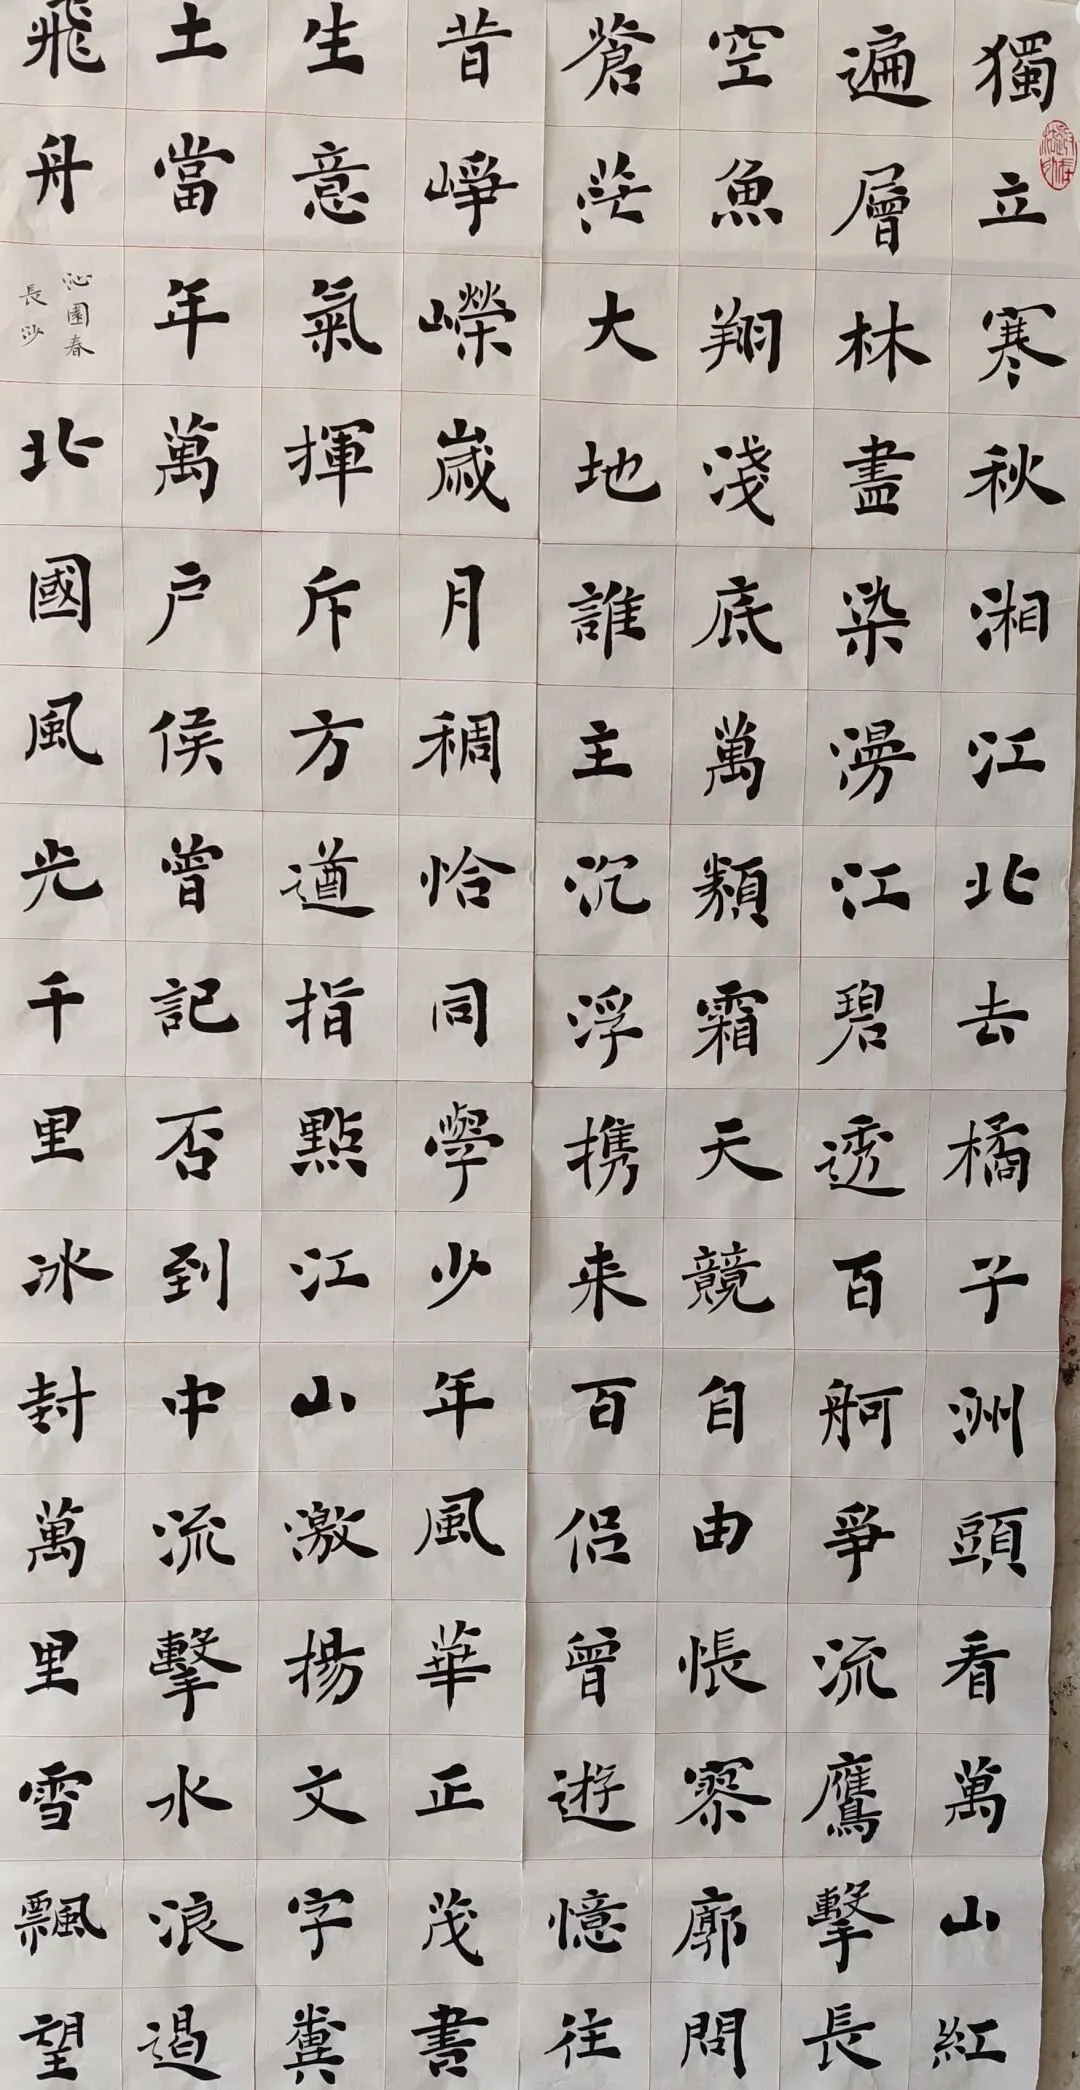 獨立寒秋湘江北去橘子洲頭看萬山紅
遍層林盡染漫江碧透百舸爭流鷹擊長
空魚翔淺底萬類霜天競自由悵寥廓問
蒼茫大地誰主沉浮携来百侣曾遊憶往
昔崢嶸歲月稠恰同學少年風華正茂書
生意氣揮斥方遒指點江山激揚文字糞
土當年萬户侯曾記否到中流擊水浪遏
飛舟
沁園春
長沙
北國風光千里冰封萬里雪飄望